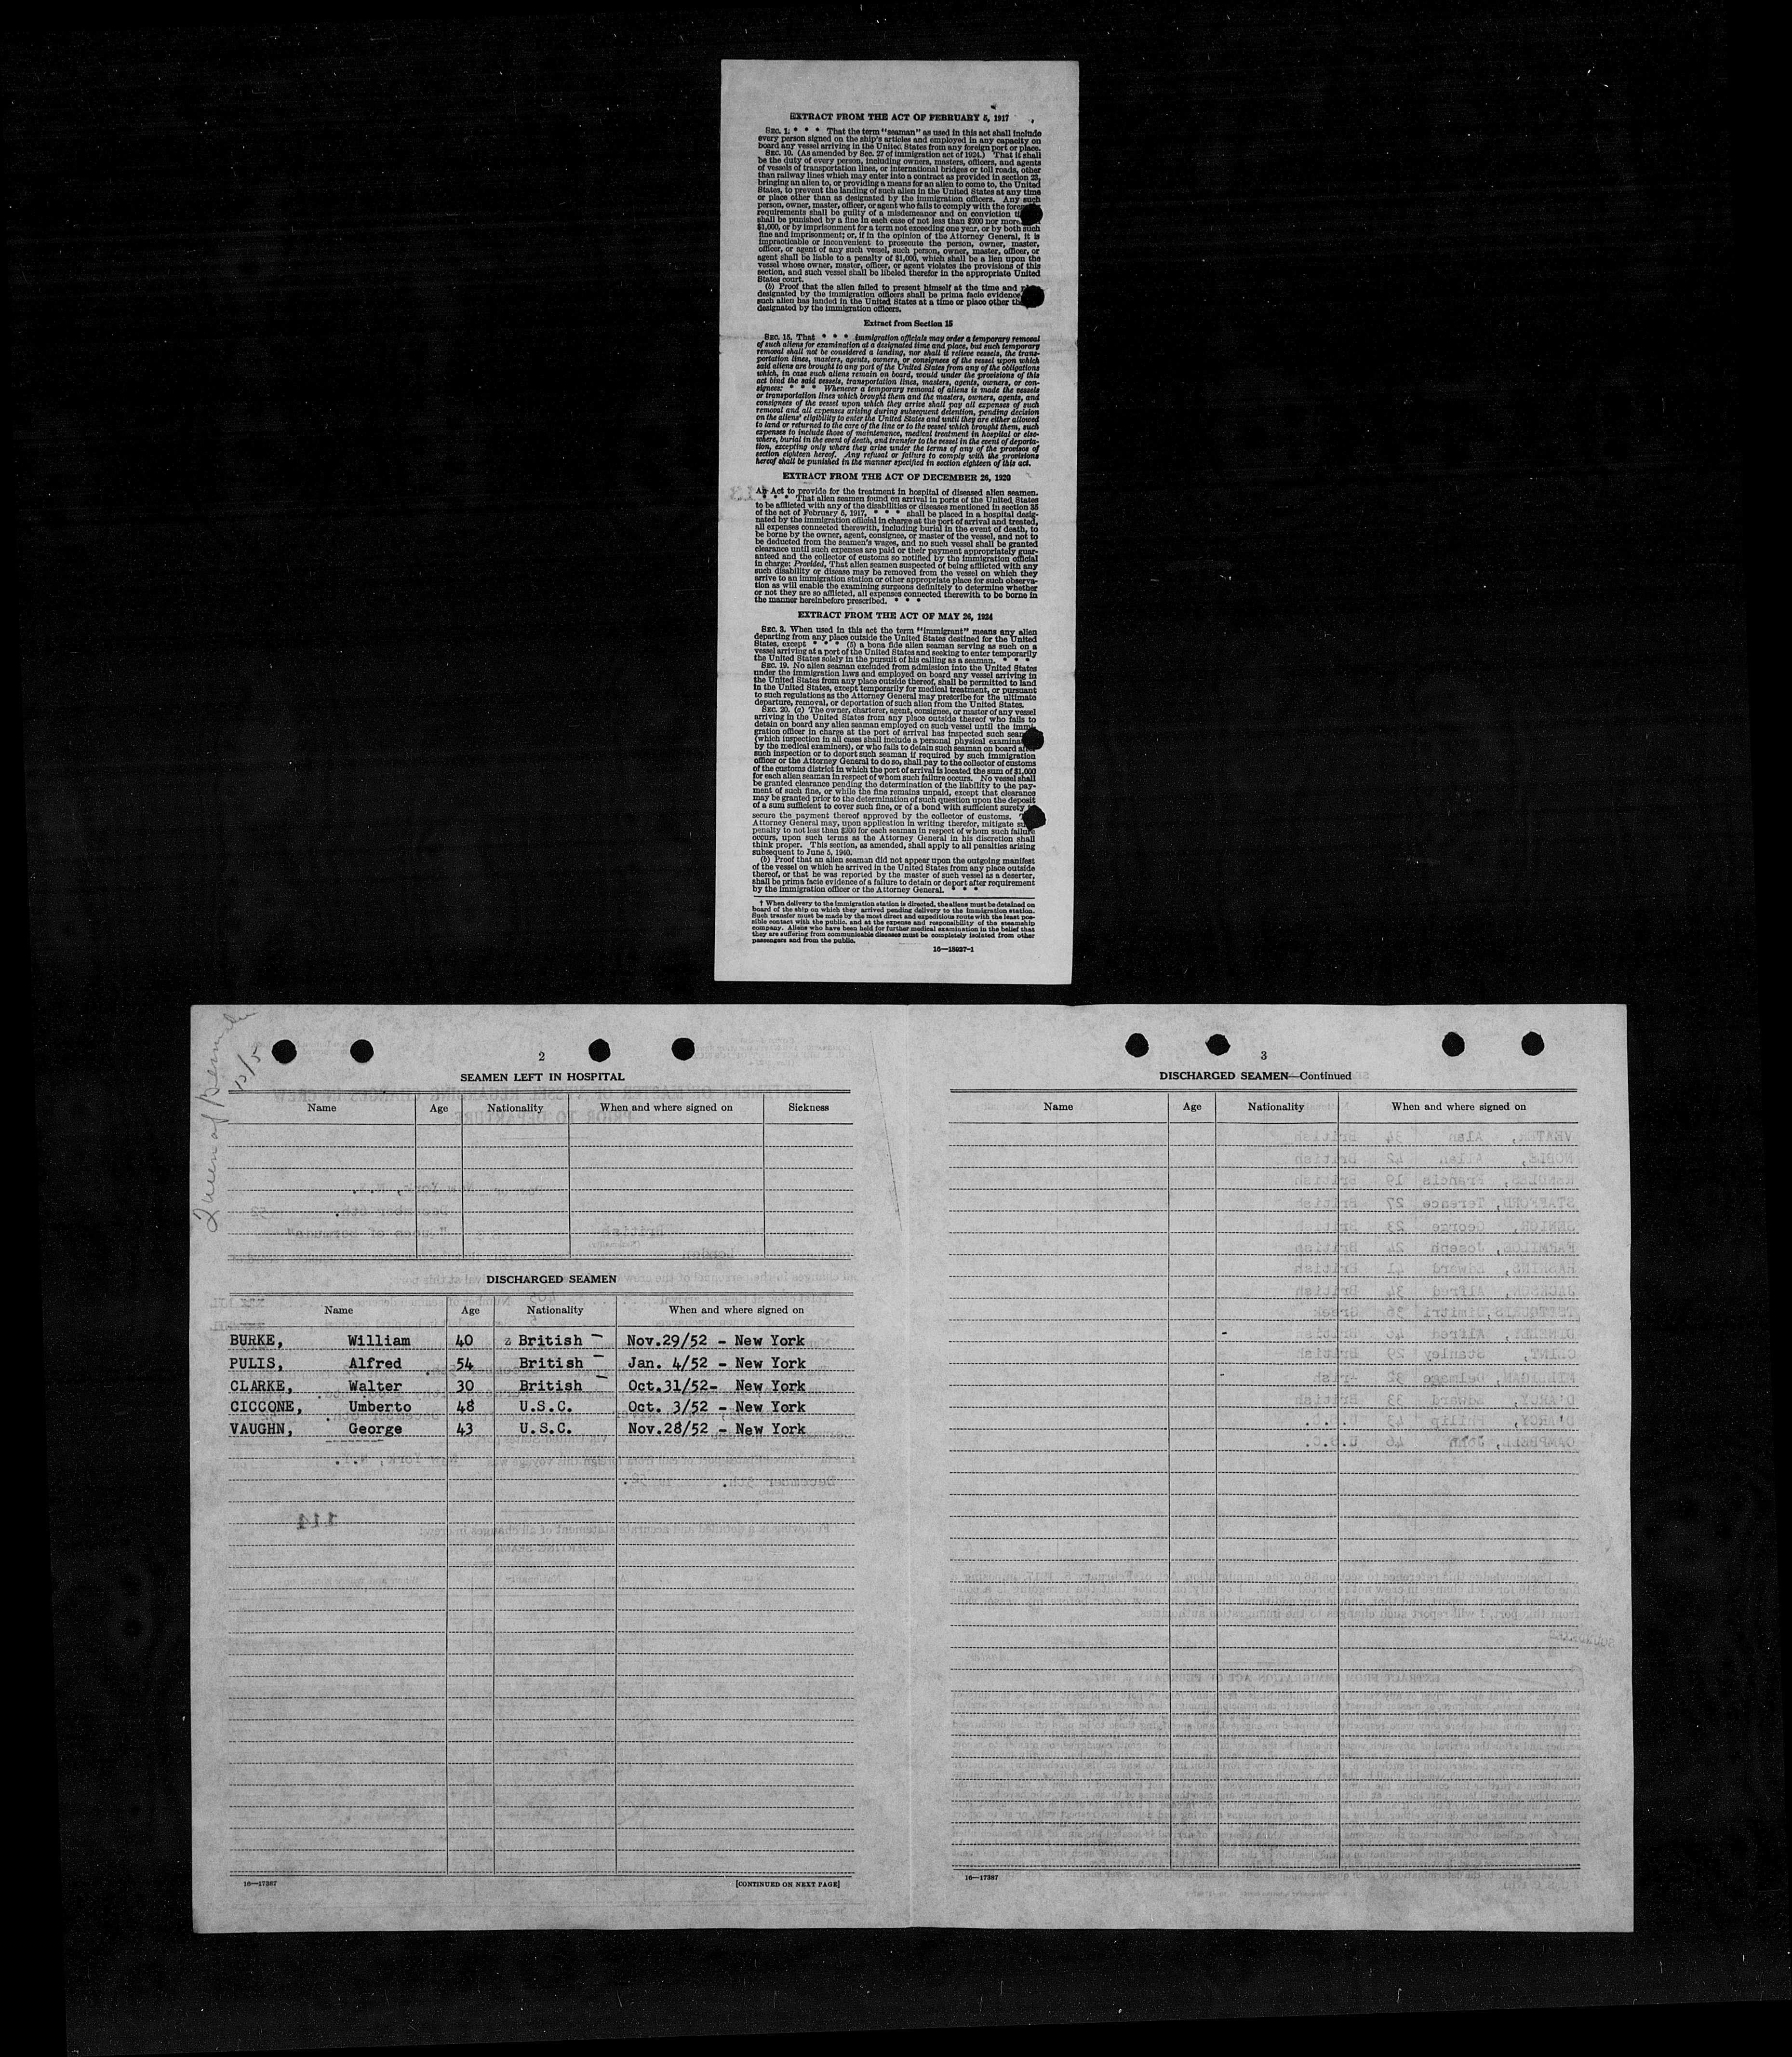 EXTRACT FROM THE ACT OF FEBRUARY 5, 1917
SEC. 1. * * * That the term "seaman" as used in this act shall include
every person signed on the ship's articles and employed in any capacity on
board any vessel arriving in the United States from any foreign port or place.
SEC. 10. (As amended by Sec. 27 of immigration act of 1924.) That it shall
be the duty of every person, including owners, masters, officers, and agents
of vessels of transportation lines, or international bridges or toll roads, other
than railway lines which may enter into a contract as provided in section 23,
bringing an alien to, or providing a means for an alien to come to, the United
States, to prevent the landing of such alien in the United States at any time
or place other than as designated by the immigration officers. Any such
person, owner, master, officer, or agent who fails to comply with the
requirements shall be guilty of a misdemeanor and on conviction
shall be punished by a fine in each case of not less than $200 nor more
$1,000, or by imprisonment for a term not exceeding one year, or by both such
fine and imprisonment; or, if in the opinion of the Attorney General, it is
impracticable or inconvenient to prosecute the person, owner, master,
officer, or agent of any such vessel, such person, owner, master, officer, or
agent shall be liable to a penalty of $1,000, which shall be a lien upon the
vessel whose owner, master, officer, or agent violates the provisions of this
section, and such vessel shall be libeled therefor in the appropriate United
States court.
(b) Proof that the alien failed to present himself at the time and
designated by the immigration officers shall be prima facie evidence
such alien has landed in the United States at a time or place other
designated by the immigration officers.
Extract from Section 15
SEC. 15. That * * * immigration officials may order a temporary removal
of such aliens for examination at a designated time and place, but such temporary
removal shall not be considered a landing, nor shall it relieve vessels, the trans-
portation lines, masters, agents, owners, or consignees of the vessel upon which
said aliens are brought to any port of the United States from any of the obligations
which, in case such aliens remain on board, would under the provisions of this
act bind the said vessels, transportation lines, masters, agents, owners, or con-
signees: * * * Whenever a temporary removal of aliens is made the vessels
or transportation lines which brought them and the masters, owners, agents, and
consignees of the vessel upon which they arrive shall pay all expenses of such
removal and all expenses arising during subsequent detention, pending decision
on the aliens' eligibility to enter the United States and until they are either allowed
to land or returned to the care of the line or to the vessel which brought them, such
expenses to include those of maintenance, medical treatment in hospital or else-
where, burial in the event of death, and transfer to the vessel in the event of deporta-
tion, excepting only where they arise under the terms of any of the provisos of
section eighteen hereof. Any refusal or failure to comply with the provisions
hereof shall be punished in the manner specified in section eighteen of this act.
EXTRACT FROM THE ACT OF DECEMBER 26, 1920
An Act to provide for the treatment in hospital of diseased alien seamen.
* * * That alien seamen found on arrival in ports of the United States
to be afflicted with any of the disabilities or diseases mentioned in section 35
of the act of February 5, 1917, * * * shall be placed in a hospital desig-
nated by the immigration official in charge at the port of arrival and treated,
all expenses connected therewith, including burial in the event of death, to
be borne by the owner, agent, consignee, or master of the vessel, and not to
be deducted from the seamen's wages, and no such vessel shall be granted
clearance until such expenses are paid or their payment appropriately guar-
anteed and the collector of customs so notified by the immigration official
in charge: Provided, That alien seamen suspected of being afflicted with any
such disability or disease may be removed from the vessel on which they
arrive to an immigration station or other appropriate place for such observa-
tion as will enable the examining surgeons definitely to determine whether
or not they are so afflicted, all expenses connected therewith to be borne in
the manner hereinbefore prescribed. * * *
EXTRACT FROM THE ACT OF MAY 26, 1924
SEC. 3. When used in this act the term "immigrant" means any alien
departing from any place outside the United States destined for the United
States, except * * * (5) a bona fide alien seaman serving as such on a
vessel arriving at a port of the United States and seeking to enter temporarily
the United States solely in the pursuit of his calling as a seaman. * * *
SEC. 19. No alien seaman excluded from admission into the United States
under the immigration laws and employed on board any vessel arriving in
the United States from any place outside thereof, shall be permitted to land
in the United States, except temporarily for medical treatment, or pursuant
to such regulations as the Attorney General may prescribe for the ultimate
departure, removal, or deportation of such alien from the United States.
SEC. 20. (a) The owner, charterer, agent, consignee, or master of any vessel
arriving in the United States from any place outside thereof who fails to
detain on board any alien seaman employed on such vessel until the immi-
gration officer in charge at the port of arrival has inspected such
(which inspection in all cases shall include a personal physical
by the medical examiners), or who fails to detain such seaman on board
such inspection or to deport such seaman if required by such immigration
officer or the Attorney General to do so, shall pay to the collector of customs
of the customs district in which the port of arrival is located the sum of $1,000
for each alien seaman in respect of whom such failure occurs. No vessel shall
be granted clearance pending the determination of the liability to the pay-
ment of such fine, or while the fine remains unpaid, except that clearance
may be granted prior to the determination of such question upon the deposit
of a sum sufficient to cover such fine, or of a bond with sufficient surety
secure the payment thereof approved by the collector of customs.
Attorney General may, upon application in writing therefor, mitigate
penalty to not less than $200 for each seaman in respect of whom such failure
occurs, upon such terms as the Attorney General in his discretion shall
think proper. This section, as amended, shall apply to all penalties arising
subsequent to June 5, 1940.
(b) Proof that an alien seaman did not appear upon the outgoing manifest
of the vessel on which he arrived in the United States from any place outside
thereof, or that he was reported by the master of such vessel as a deserter,
shall be prima facie evidence of a failure to detain or deport after requirement
by the immigration officer or the Attorney General. * * *
† When delivery to the immigration station is directed, the aliens must be detained on
board of the ship on which they arrived pending delivery to the immigration station.
Such transfer must be made by the most direct and expeditious route with the least pos-
sible contact with the public, and at the expense and responsibility of the steamship
company. Aliens who have been held for further medical examination in the belief that
they are suffering from communicable diseases must be completely isolated from other
passengers and from the public.
16—15027-1
Queen of Bermuda
12/5
2
SEAMEN LEFT IN HOSPITAL
Name Age Nationality When and where signed on Sickness
DISCHARGED SEAMEN
Name Age Nationality When and where signed on
BURKE, William 40 British Nov.29/52 - New York
PULIS, Alfred 54 British Jan. 4/52 - New York
CLARKE, Walter 30 British Oct.31/52- New York
CICCONE, Umberto 48 U.S.C. Oct. 3/52 - New York
VAUGHN, George 43 U.S.C. Nov.28/52 - New York
16—17387 [CONTINUED ON NEXT PAGE]
3
DISCHARGED SEAMEN—Continued
Name Age Nationality When and where signed on
16—17387